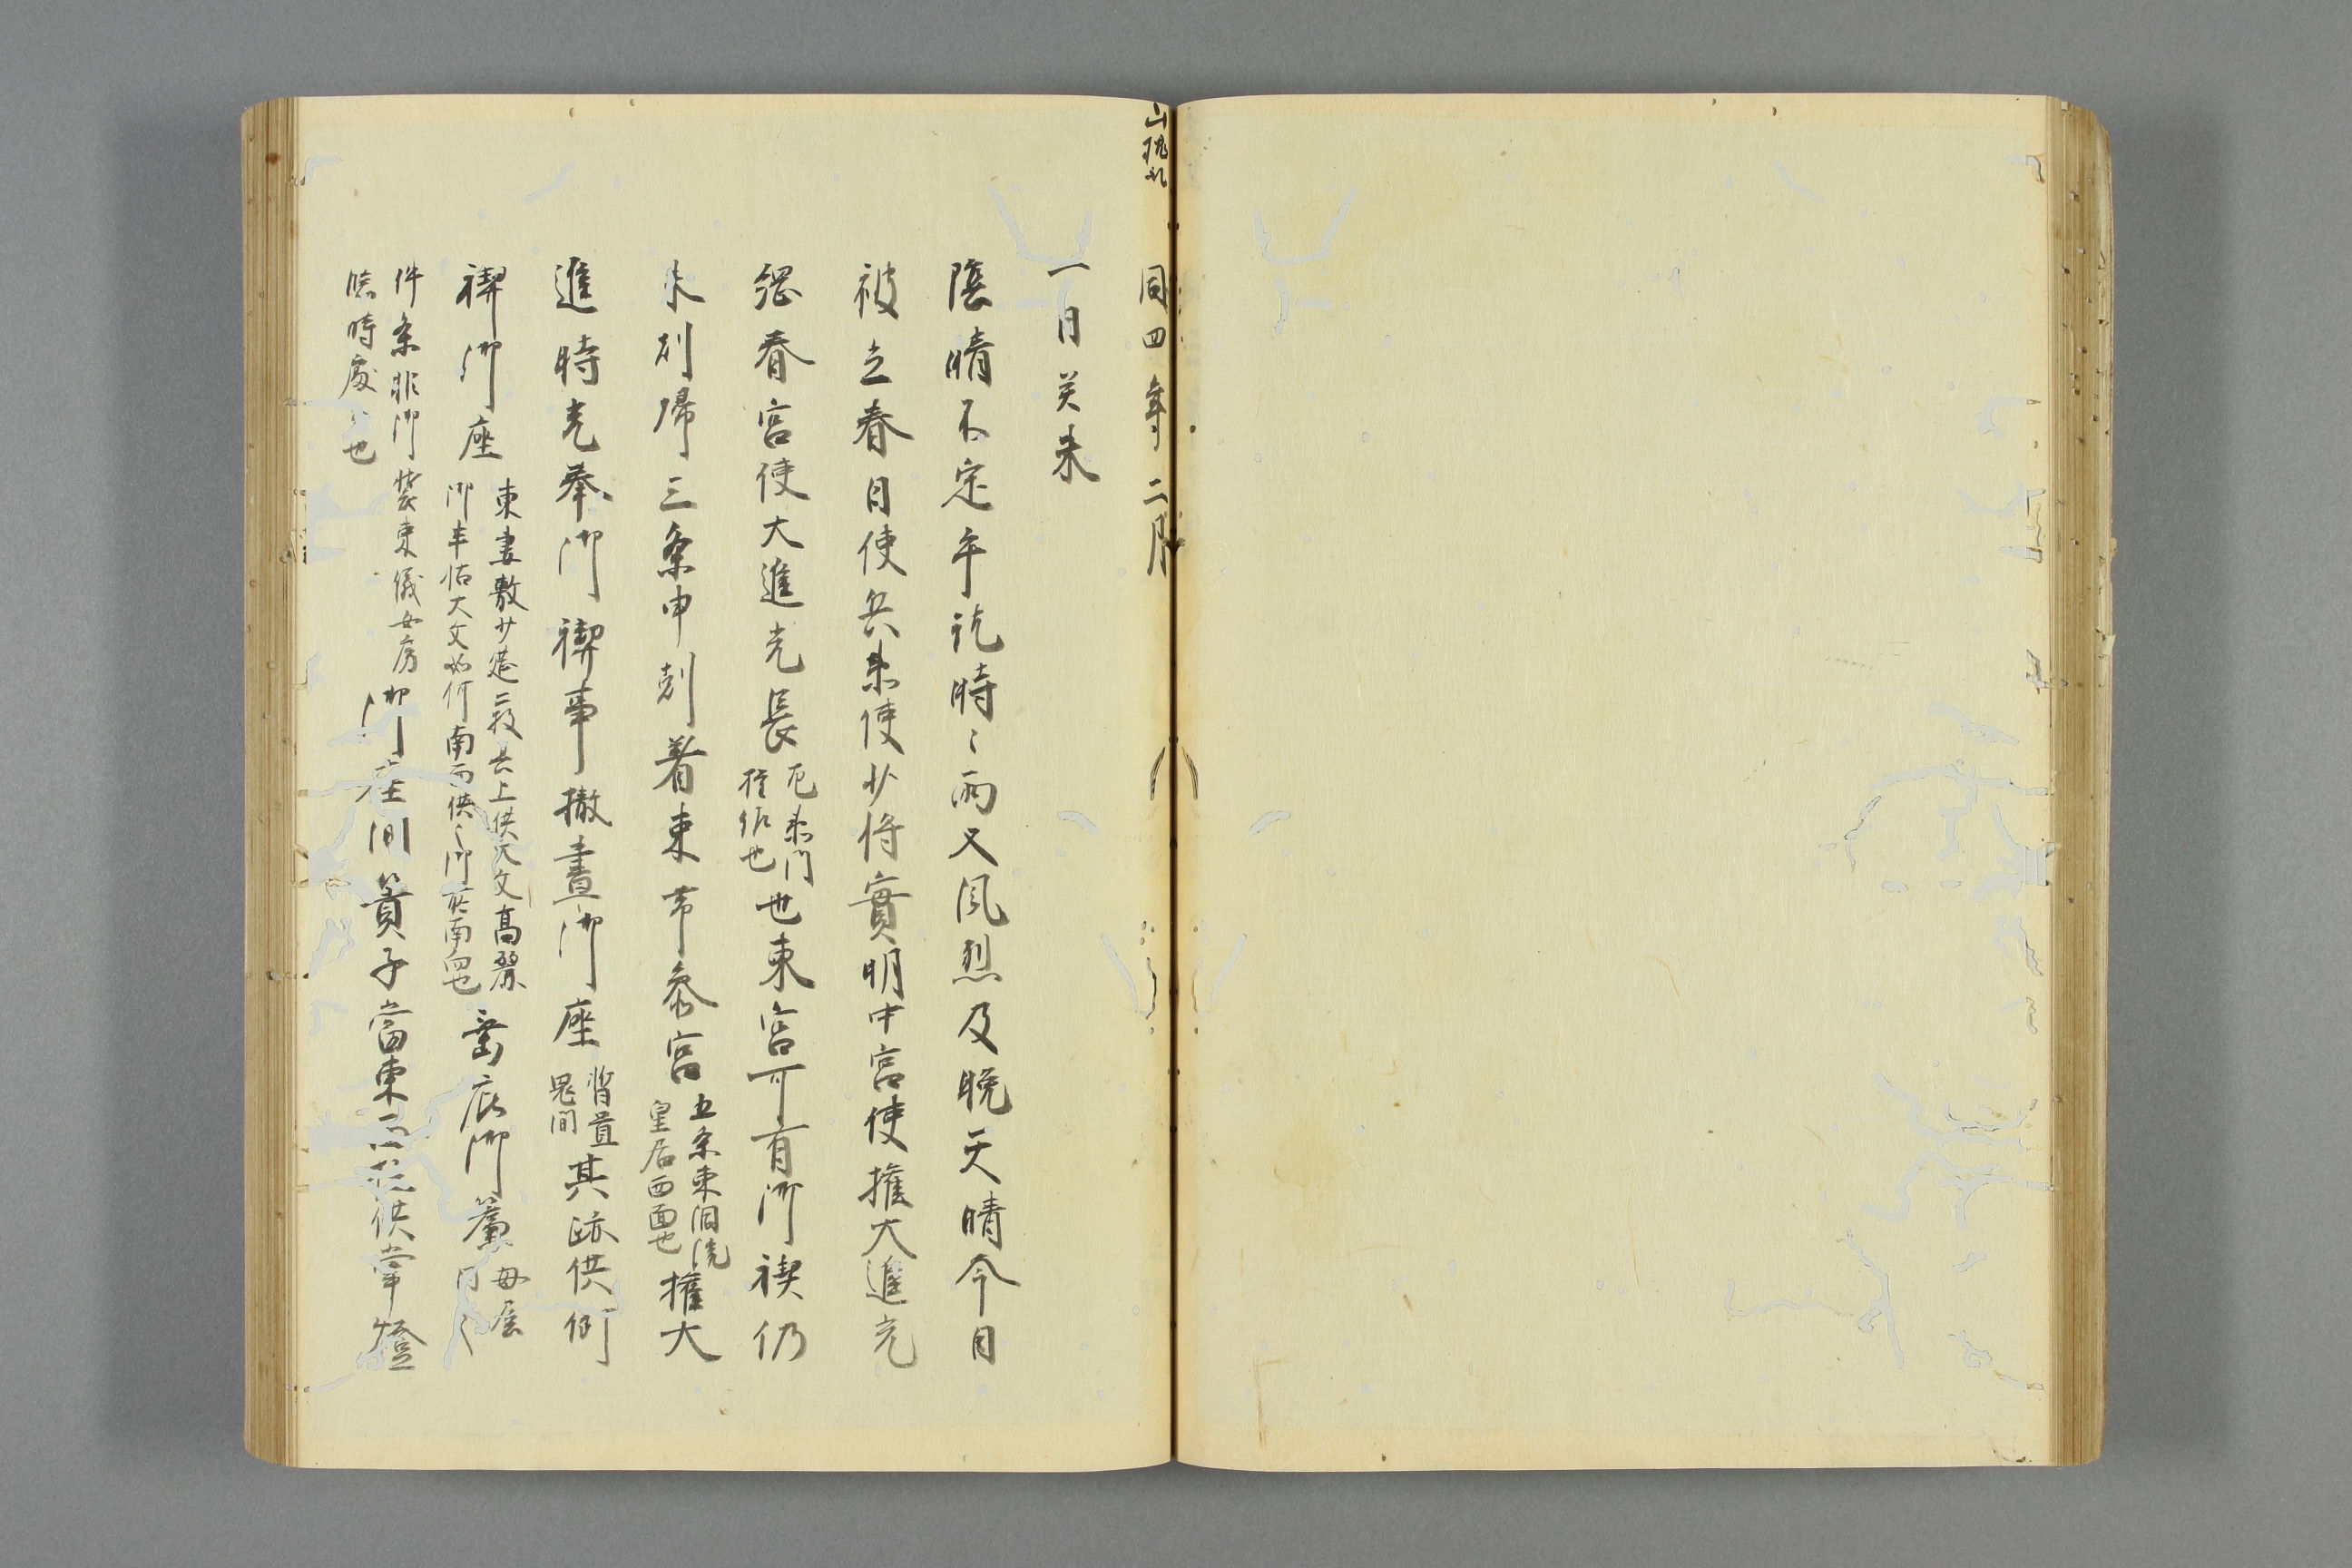 山槐記
同四年二月
一日癸未
陰晴不定午許時〻雨又風烈及晩天晴今日
被立春日使兵衛使少将實明中宮使権大進光
綱春宮使大進光長右衛門権佐也也東宮可有御禊仍
未刻帰三条申刻着束帯参宮五条東洞院皇居西面也権大
進時光奉御禊事撤晝御座暫置鬼間其跡供例
禊御座東妻敷少莚二枚其上供大文高麗御半帖大文如何南面供〻御前南面也垂庇御簾母屋同〻
件条非御装束儀女房臨時處〻也御座間簀子當東一本供掌燈